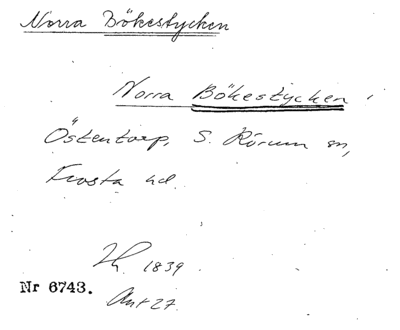 Norra Bökestycken
Norra Bökestycken
Östentorp, S. Rörum sn,
Frosta hd.
1839.
Nr 6743.
Akt 27.